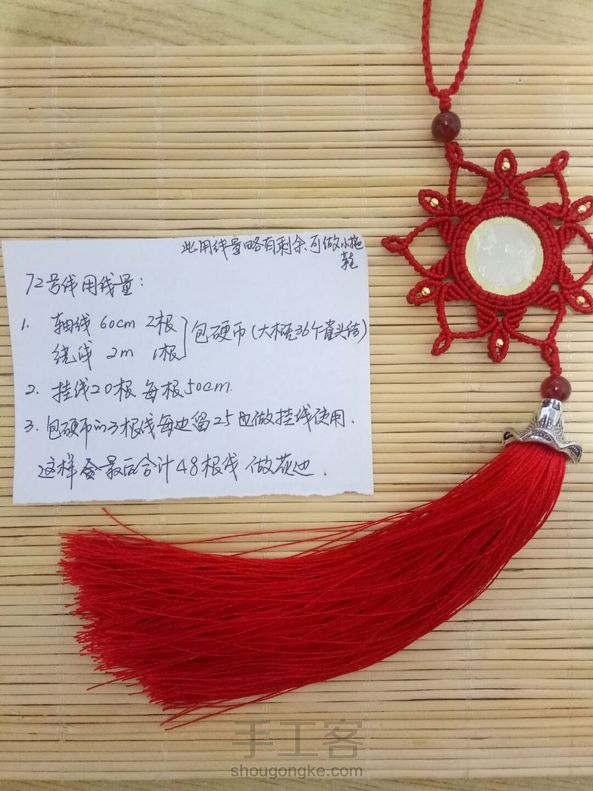 此用线量略有剩余、可做小拖
鞋
72号线用线量：
1. 轴线 60cm 2根
绕线 2m 1根
包硬币（大概36个雀头结）
2. 挂线20根 每根50cm.
3. 包硬币的3根线每边留25也做挂线使用.
这样会最后合计48根线 做花边.
手工客
shougongke.com